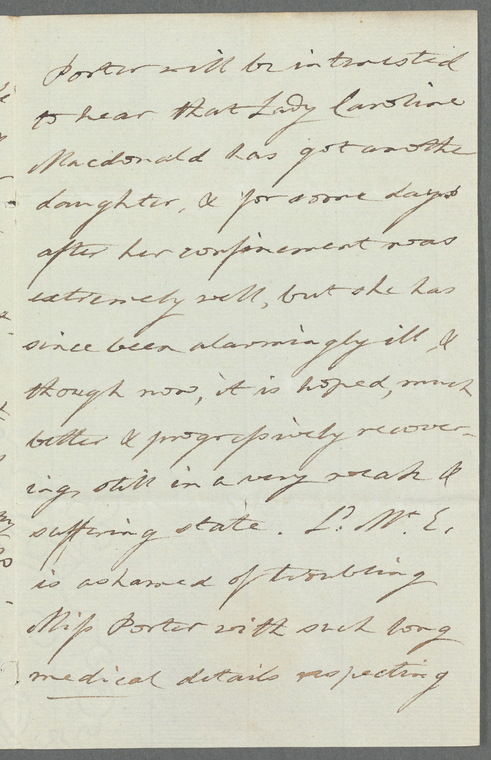 Porter will be interested
to hear that Lady Caroline
Macdonald has got another
daughter, & for some days
after her confinement was
extremely well, but she has
since been alarmingly ill, &
though now, it is hoped, much
better & progressively recover-
ing, still in a very weak &
suffering state. Ly. Mt. E.
is ashamed of troubling
Miss Porter with such long
medical details respecting